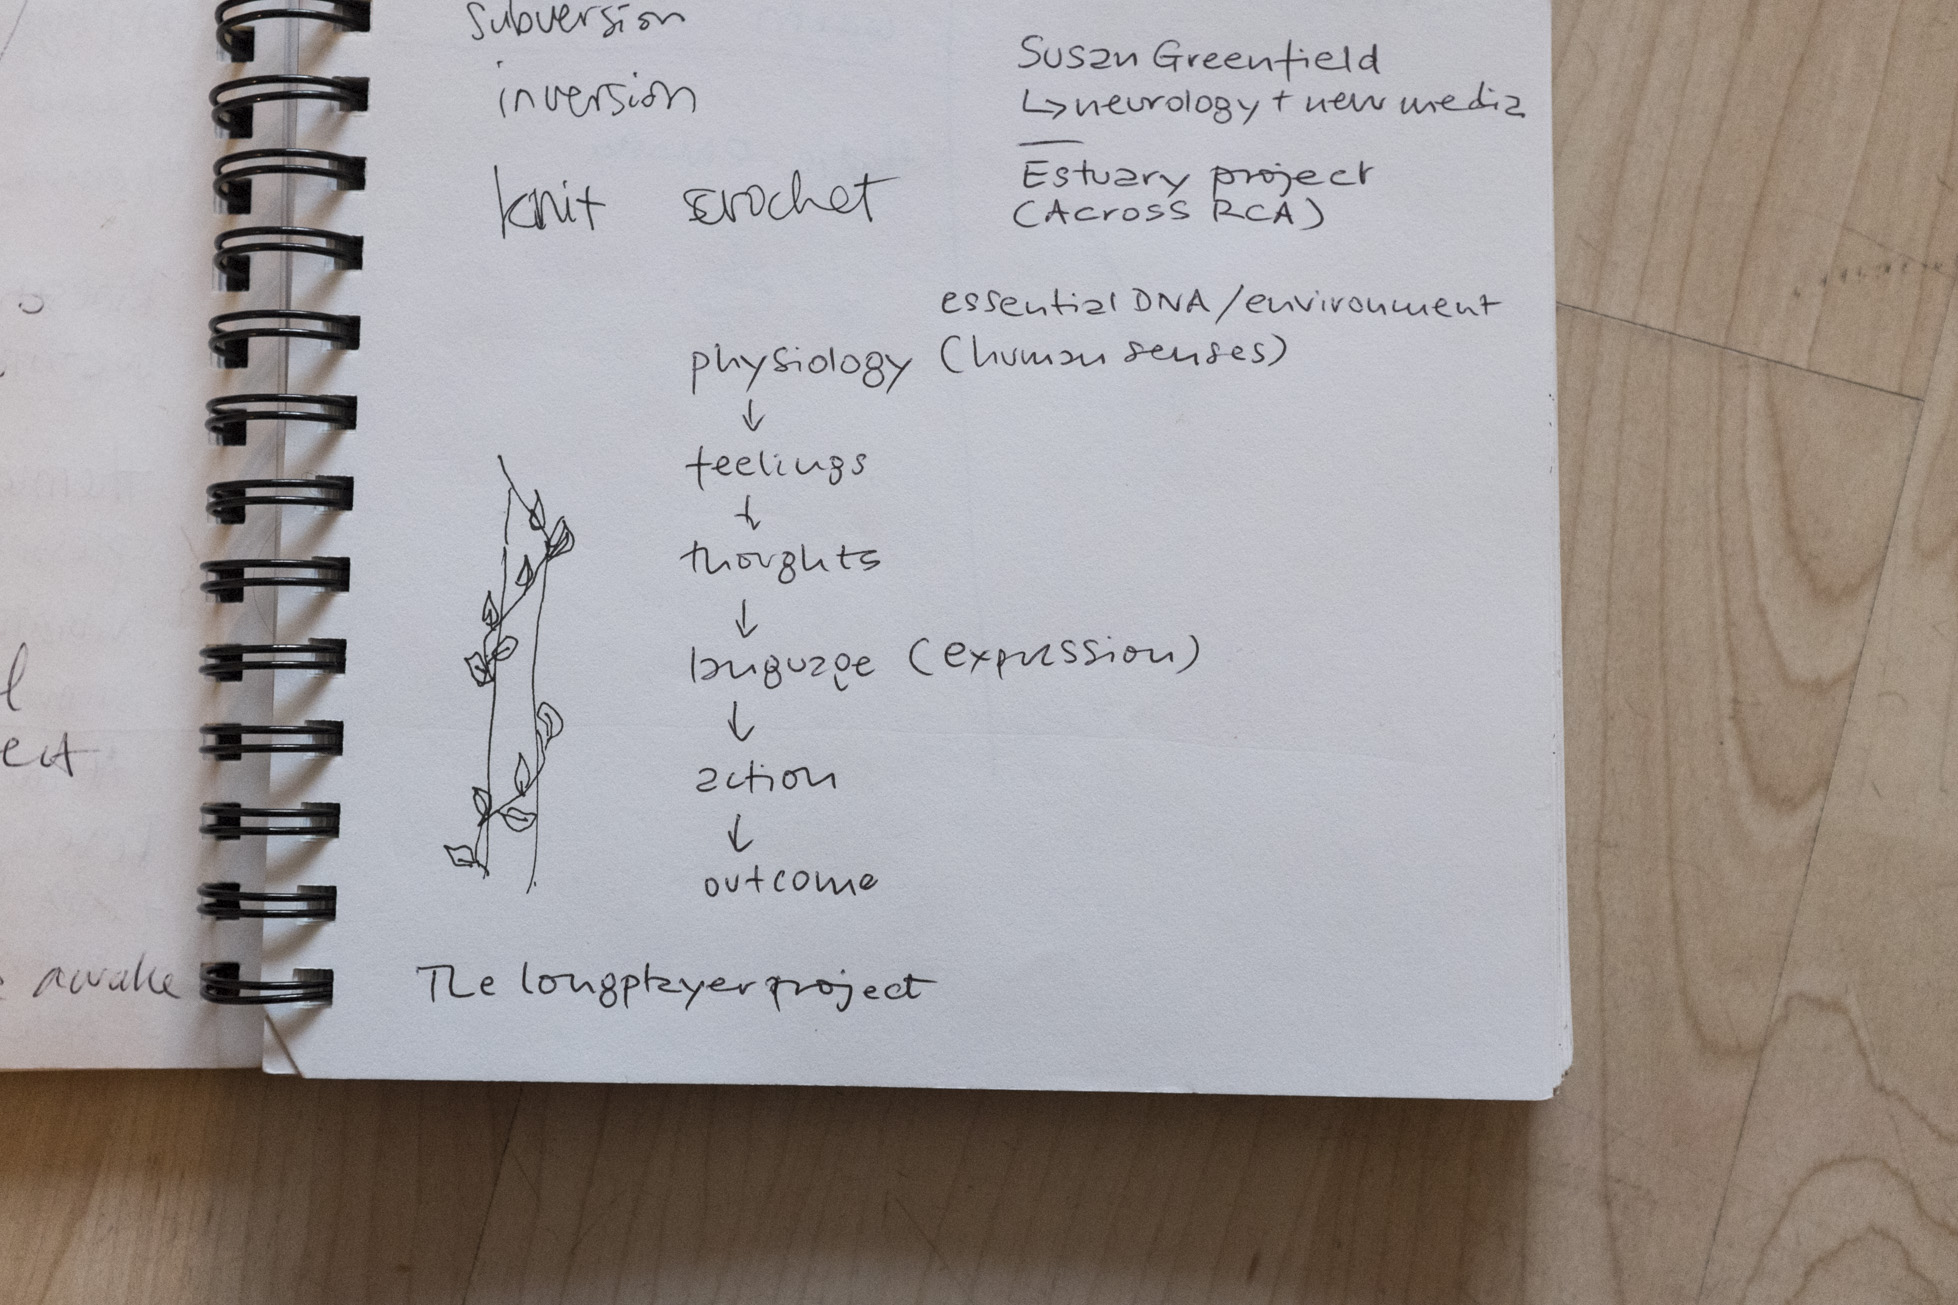 subversion
inversion
knit crochet
Susan Greenfield
↳ neurology + new media
Estuary project
(Across RCA)
essential DNA/environment
physiology (human senses)
↓
feelings
↓
thoughts
↓
language (expression)
↓
action
↓
outcome
The longplayer project
awake